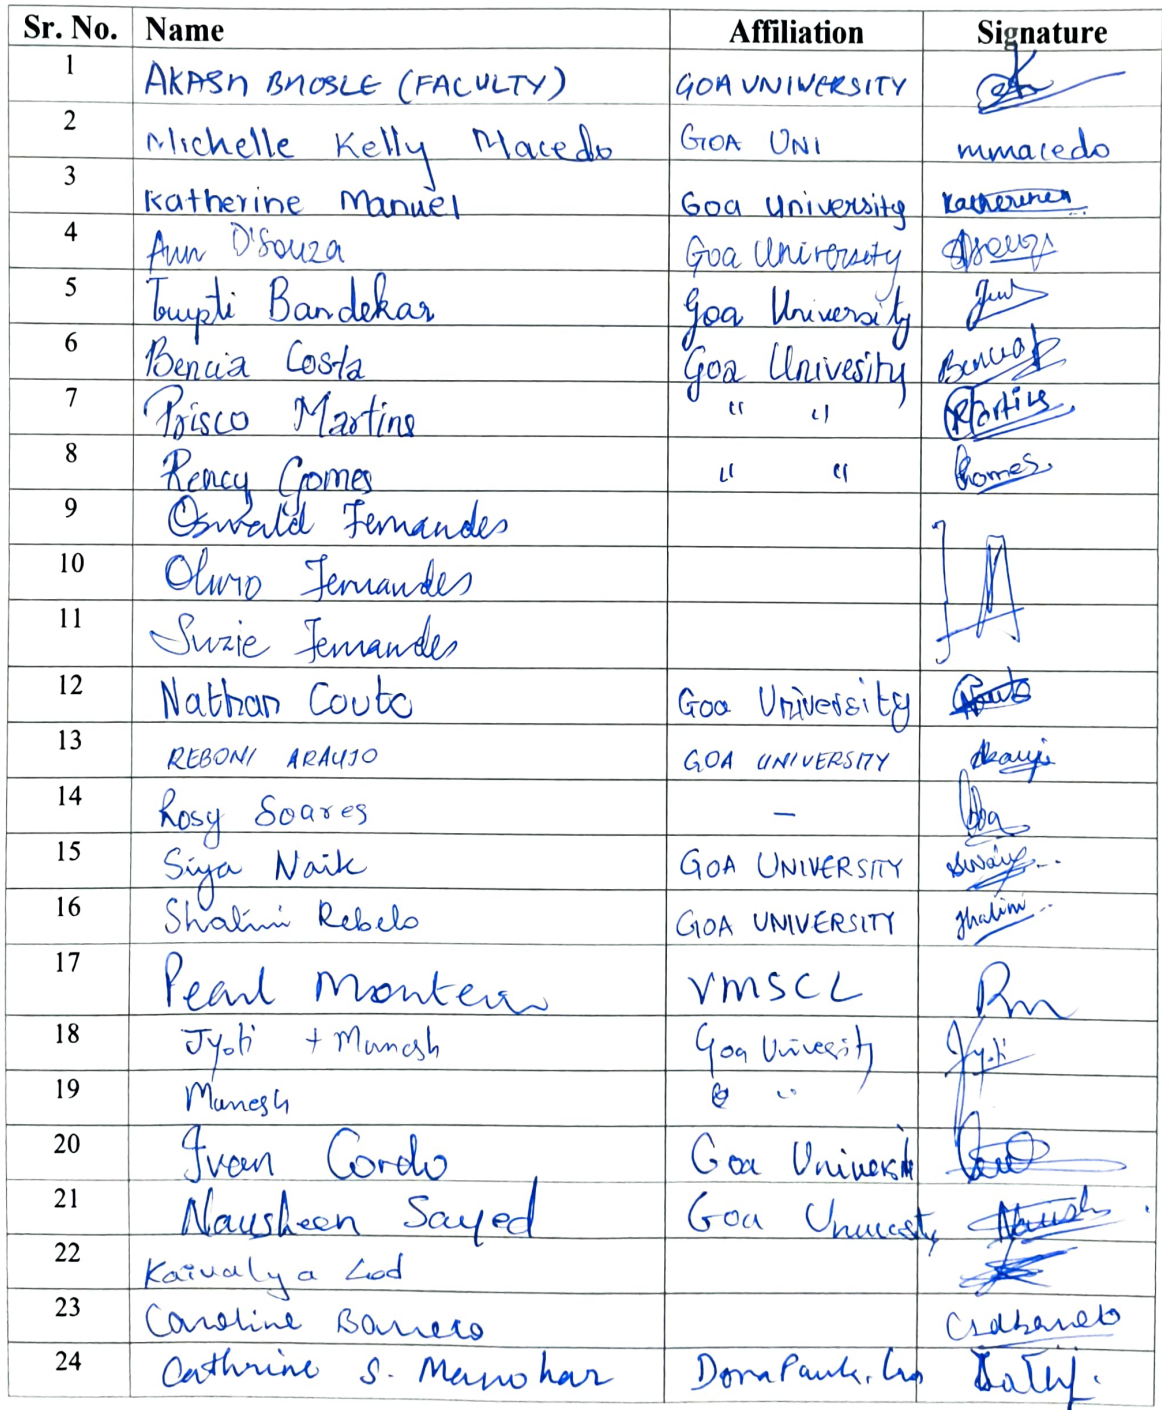 Sr. No. Name Affiliation Signature
1 AKASH BHOSLE (FACULTY) GOA UNIVERSITY
2 Michelle Kelly Macedo GOA UNI mmacedo
3 Katherine Manuel Goa University Katherine
4 Ann D'Souza Goa University
5 Trupti Bandekar Goa University
6 Bencia Costa Goa Univesity Bencia
7 Prisco Martins " " Martins
8 Rency Gomes " " Gomes
9 Oswald Fernandes
10 Olivio Fernandes
11 Suzie Fernandes
12 Nathan Couto Goa University
13 REBONI ARAUJO GOA UNIVERSITY
14 Rosy Soares –
15 Siya Naik GOA UNIVERSITY
16 Shalini Rebelo GOA UNIVERSITY Shalini
17 Pearl Monteiro VMSCL Pm
18 Jyoti + Manesh Goa University Jyoti
19 Manesh "
20 Ivan Cordo Goa University
21 Nausheen Sayed Goa University Naush
22 Kaivalya Lod
23 Caroline Barreto
24 Cathrine S. Manohar Dona Paula, Goa